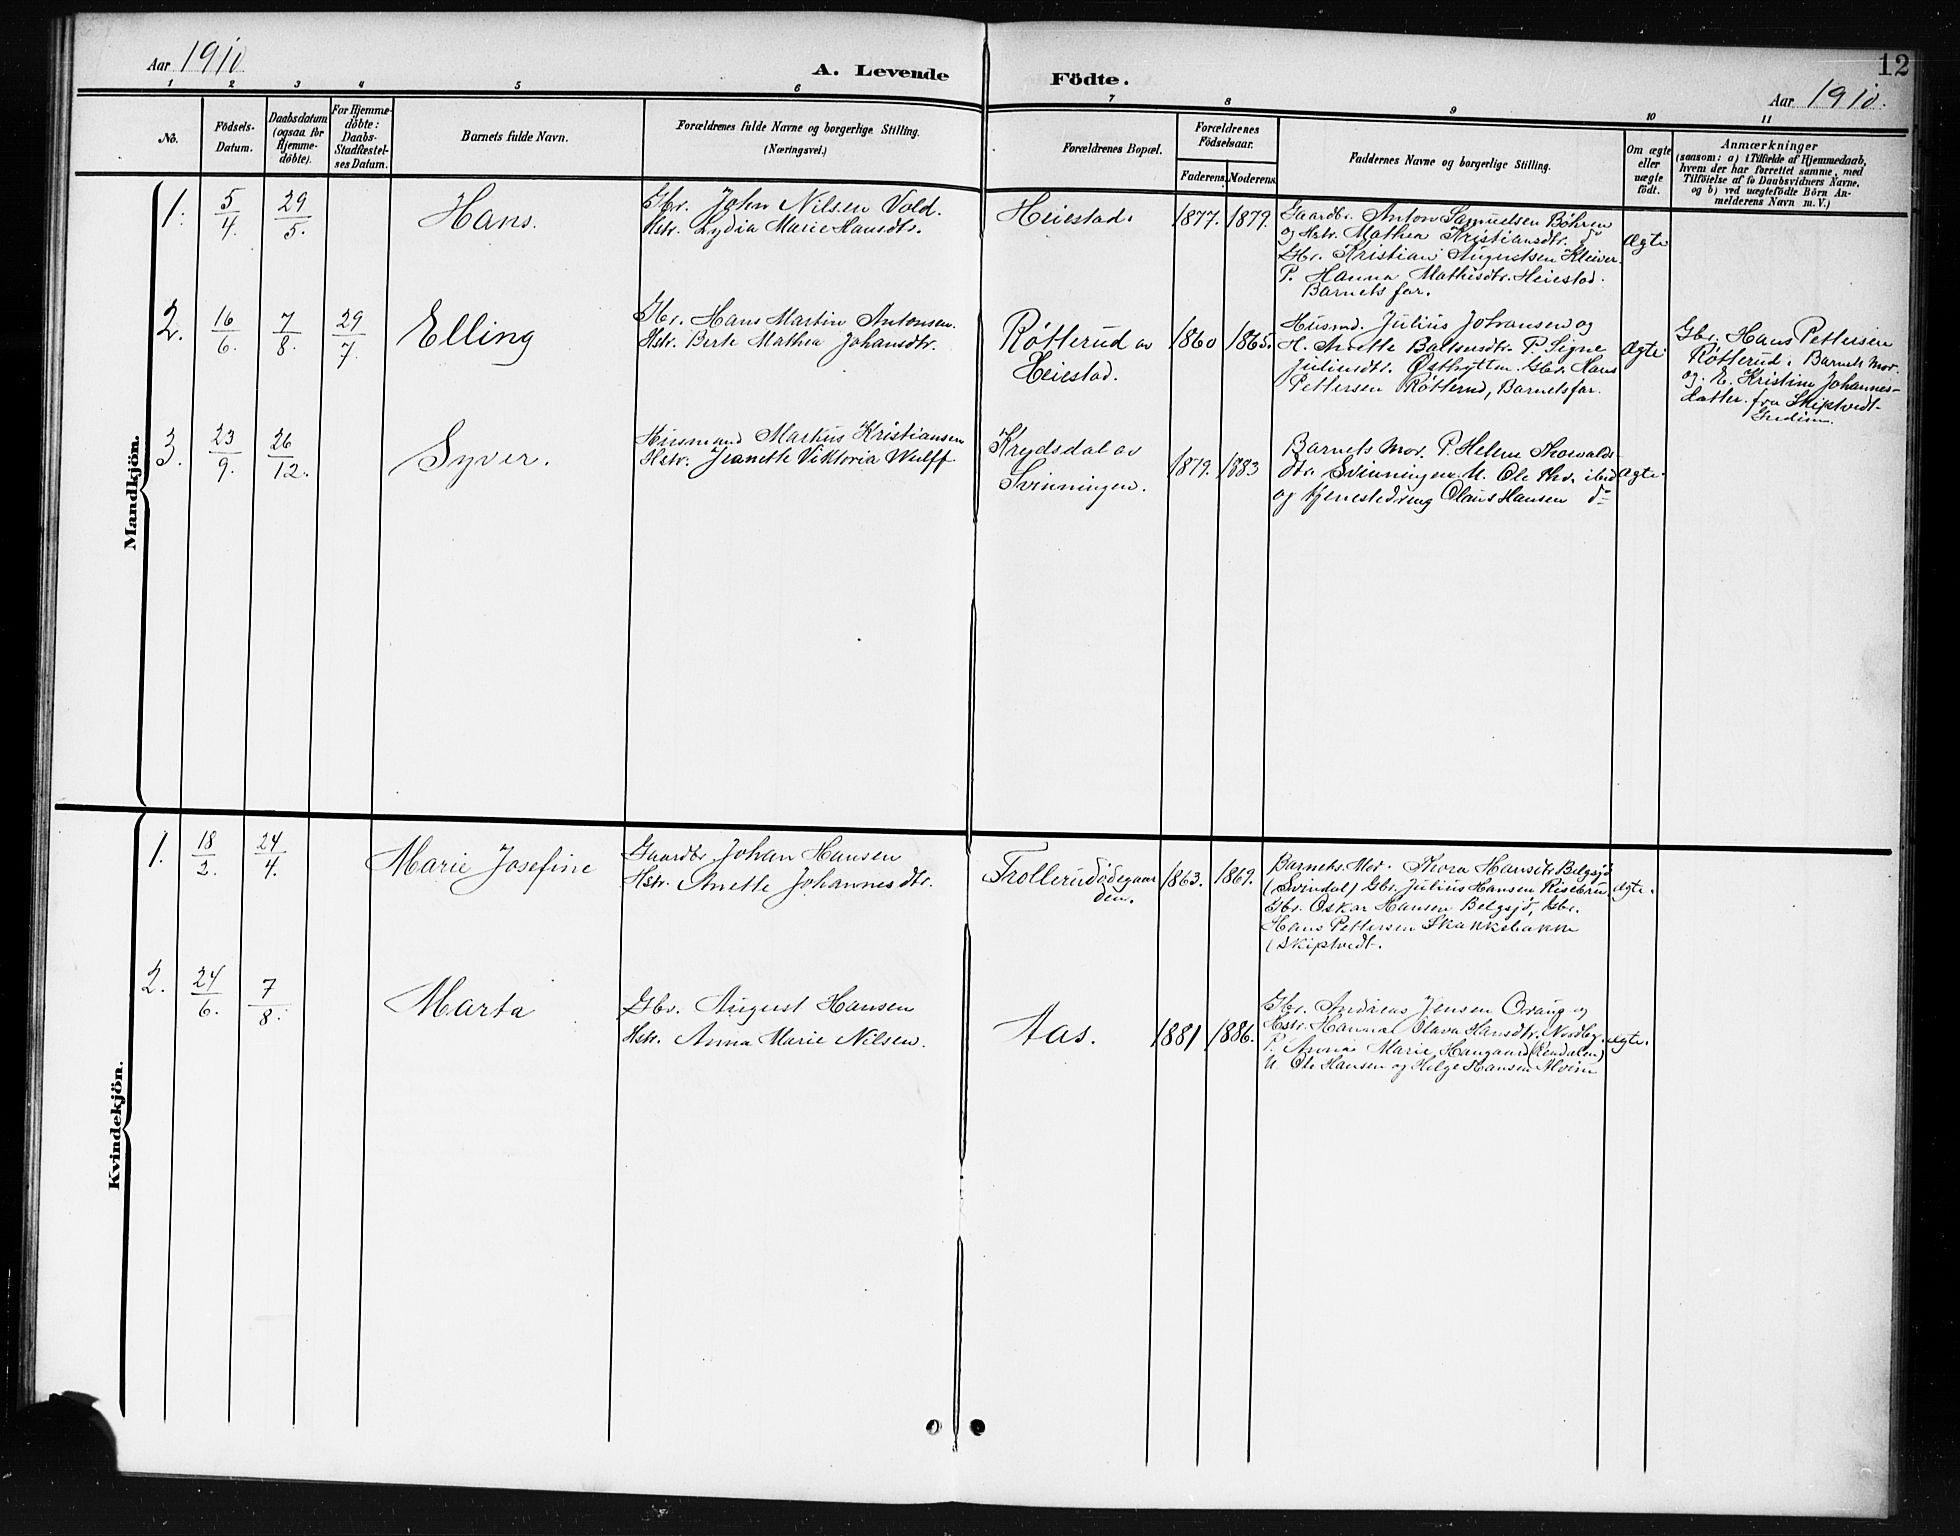 Aar 1910
A. Levende Födte.
12
Aar 1910.
1 2 3 4 5 6 7 8 9 10 11
No.
Födsels-
Datum.
Daabsdatum
(ogsaa for
Hjemme-
döbte).
For Hjemme-
döbte:
Daabs-
Stadfæstel-
ses Datum.
Barnets fulde Navn.
Forældrenes fulde Navne og borgerlige Stilling.
(Næringsvei.)
Forældrenes Bopæl.
Forældrenes
Födselsaar.
Faderens. Moderens.
Faddernes Navne og borgerlige Stilling.
Om ægte
eller
uægte
födt.
Anmærkninger
(saasom: a) i Tilfælde af Hjemmedaab,
hvem der har forrettet samme, med
Tilföielse af to Daabsvidners Navne,
og b) ved uegtefödte Börn An-
melderens Navn m. V.)
Mandkjön.
1. 5/4. 29/5.
Hans.
Gbr. Johan Nilsen Vold.
Hstr. Lydia Marie Hansdtr.
Heiestad.
1877. 1879.
Gaardbr. Anton Samuelsen Böhren
og Hstr. Mathea Kristiansdtr. do
Gbr. Kristian Augustsen Kleiver.
P. Hanna Mathisdtr. Heiestad.
Barnets far.
Ægte
2. 16/6. 7/8. 29/7.
Elling
Gbr. Hans Martin Antonsen.
Hstr. Berte Mathea Johansdtr.
Røtterud av
Heiestad.
1860 1865.
Husmd. Julius Johansen og
H. Anette Baltsersdtr. P. Signe
Juliusdtr. Østhytten. Gbr. Hans
Pettersen Røtterud, Barnets far.
Ægte
Gbr. Hans Pettersen
Røtterud. Barnets Mor.
og E. Kristine Johannes-
datter fra Skiptvedt-
3. 23/9. 26/12.
Syver.
Husmand Markus Kristiansen
Hstr. Jeanette Viktoria Wulff
Krydsdal av
Svinningen.
1879. 1883
Barnets Mor. P. Helene Thorvalds-
dtr. Svinningen U. Ole Thv. ibid
og tjenestedreng Olaus Hansen do
Ægte.
Kvindekjön.
1. 18/2. 24/4.
Marie Josefine
Gaardbr. Johan Hansen
Hstr. Anette Johannesdtr.
Trollerudödegaar
den.
1863. 1869.
Barnets Mor. Thora Hansdtr Belgsjö
(Svindal) Gbr. Julius Hansen Risebru
Gbr. Oskar Hansen Belgsjö, Gbr.
Hans Pettersen Skakkebakke
(Skiptvedt.
Ægte.
2. 24/6. 7/8.
Marta
Gbr. August Hansen
Hstr. Anna Marie Nilsen.
Aas.
1881 1886.
Gbr. Andreas Jensen Oraug og
Hstr. Hanna Olava Hansdtr. Nordby.
P. Anna Marie Haugaard
U. Ole Hansen og Helge Hansen Alvim
Ægte.